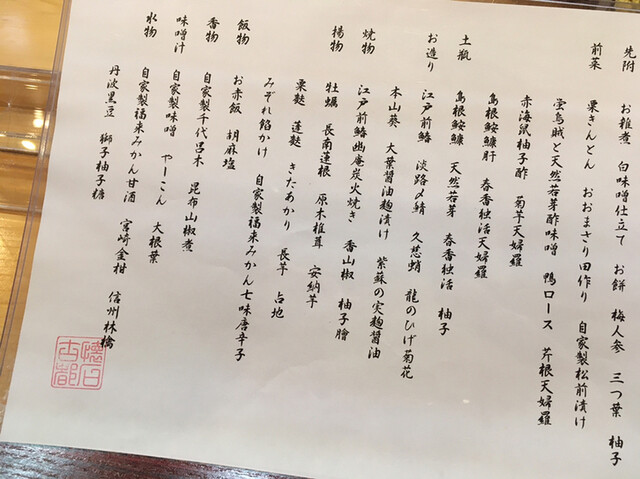 先附　お雑煮　白味噌仕立て　お餅　梅人参　三つ葉　柚子
前菜　栗きんとん　おおまさり田作り　自家製松前漬け
蛍烏賊と天然若芽酢味噌　鴨ロース　芹根天婦羅
赤海鼠柚子酢　菊芋天婦羅
島根鮟鱇肝　春香独活天婦羅
土瓶　島根鮟鱇　天然若芽　春香独活　柚子
お造り　江戸前鰆　淡路〆鯖　久慈蛸　龍のひげ菊花
本山葵　大葉醤油麹漬け　紫蘇の実麹醤油
焼物　江戸前鰆幽庵炭火焼き　香山椒　柚子膾
揚物　牡蠣　長南蓮根　原木椎茸　安納芋
栗麩　蓬麩　きたあかり　長芋　占地
みぞれ餡かけ　自家製福来みかん七味唐辛子
飯物　お赤飯　胡麻塩
香物　自家製千代呂木　昆布山椒煮
味噌汁　自家製味噌　やーこん　大根葉
水物　自家製福来みかん甘酒　宮崎金柑　信州林檎
丹波黒豆　獅子柚子糖
懐日古都